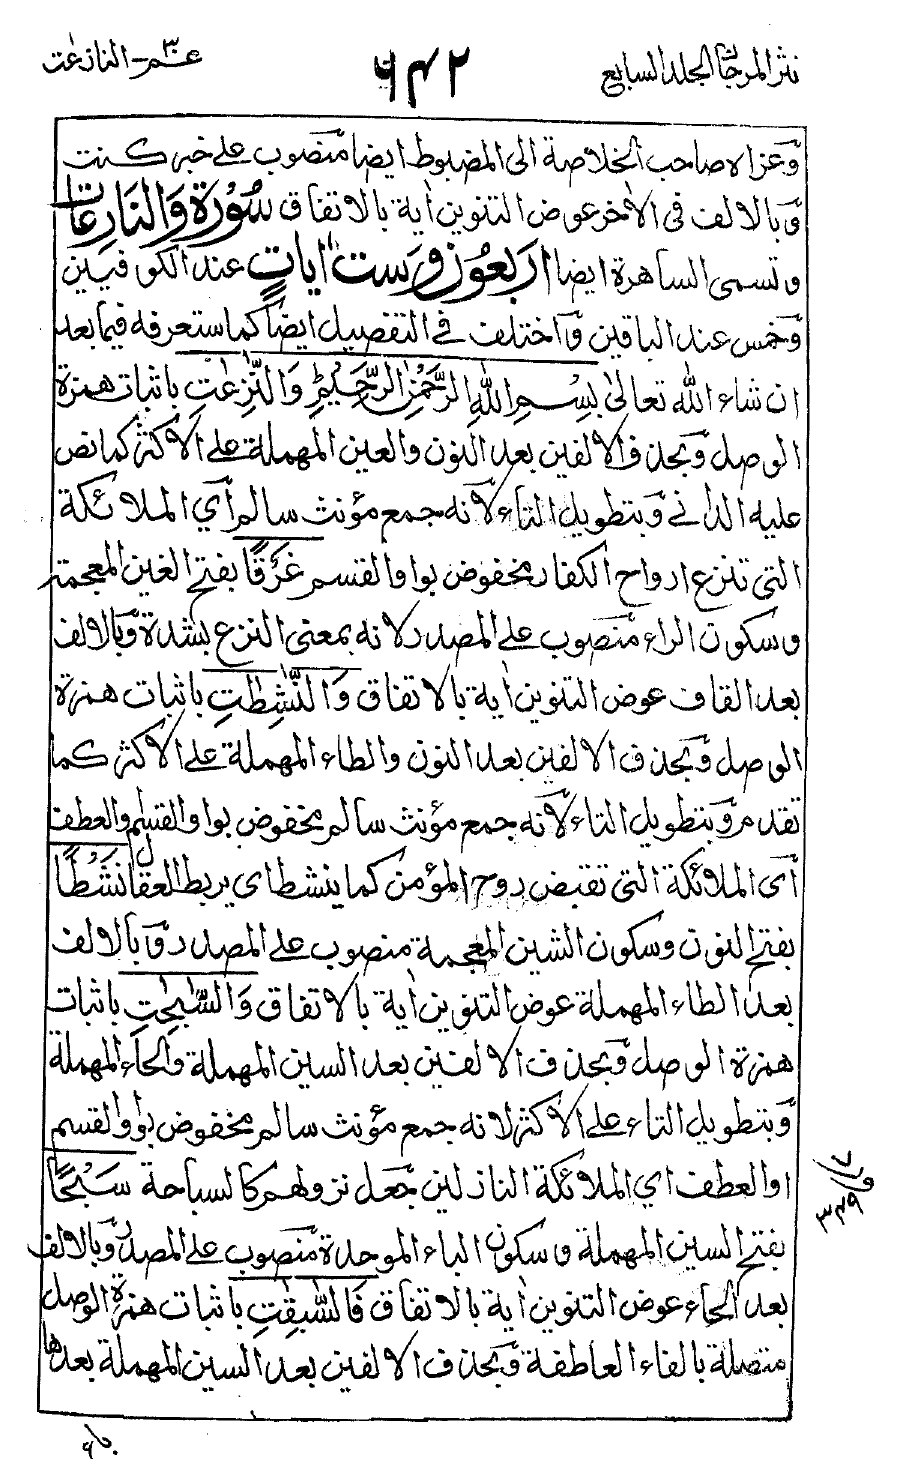 نثر المرجان المجلد السابع ٦٤٢ عـمّ ٣٠ - النازعٰت
وعزاه صاحب الخلاصة الى المضبوط ايضا منصوب على خبر كنت
وبالالف فى الاخر عوض التنوين اٰية بالاتفاق سُوْرَة وَالنَازِعَات
وتسمى الساهرة ايضا اربعُون وَست اٰياتٍ عند الكوفيين
وخمس عند الباقين واختلف فى التفصيل ايضًا كما ستعرفه فيما بعد
ان شاء الله تعالىٰ بِسْمِ اللهِ الرَّحْمٰنِ الرَّحِيْمِ وَالنّٰزِعٰتِ باثبات همزة
الوصل وبحذف الالفين بعد النون والعين المهملة على الاكثر كما نص
عليه الدانى وبتطويل التاء لانه جمع مؤنث سالم أي الملائكة
التى تنزع ارواح الكفار مخفوض بواو القسم غَرْقًا بفتح الغين المعجمة
وسكون الراء منصوب على المصدر لانه بمعنى النزع بشدة وبالالف
بعد القاف عوض التنوين اٰية بالاتفاق وَالنّٰشِطٰتِ باثبات همزة
الوصل وبحذف الالفين بعد النون والطاء المهملة على الاكثر كما
تقدم وبتطويل التاء لانه جمع مؤنث سالم مخفوض بواو القسم والعطف
أى الملائكة التى تقبض روح المؤمن كما ينشط اى يربط العقال نَشْطًا
بفتح النون وسكون الشين المعجمة منصوب على المصدر وبالالف
بعد الطاء المهملة عوض التنوين اٰية بالاتفاق وَالسّٰبِحٰتِ باثبات
همزة الوصل وبحذف الالفين بعد السين المهملة والحاء المهملة
وبتطويل التاء على الاكثر لانه جمع مؤنث سالم مخفوض بواو القسم
او العطف اي الملائكة النازلين جعل نزولهم كالسباحة سَبْحًا
بفتح السين المهملة وسكون الباء الموحدة منصوب على المصدر وبالالف
بعد الحاء عوض التنوين اٰية بالاتفاق فَالسّٰبِقٰتِ باثبات همزة الوصل
متصلة بالفاء العاطفة وبحذف الالفين بعد السين المهملة بعدها